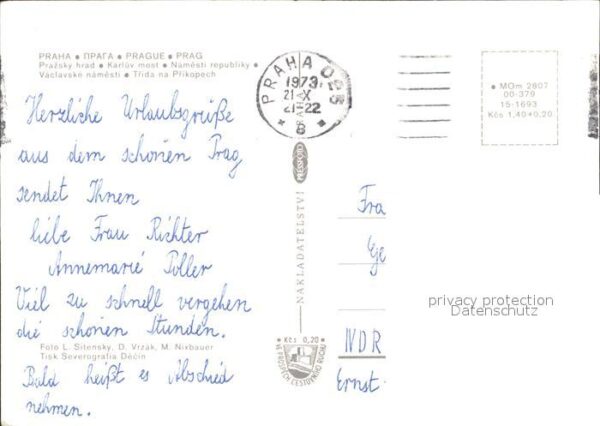 PRAHA • ПРАГА • PRAGUE • PRAG
Pražský hrad • Karlův most • Náměstí republiky •
Václavské náměstí • Třída na Příkopech
Herzliche Urlaubsgrüße
aus dem schönen Prag
sendet Ihnen
liebe Frau Richter
Annemarie Poller
Viel zu schnell vergehen
die schönen Stunden.
Foto L. Sitenský, D. Vrzák, M. Nixbauer
Tisk Severografia Děčín
Bald heißt es Abschied
nehmen.
PRAHA 025
1973
21.X
21-22
PRAHA
8
PRESSFOTO
NAKLADATELSTVÍ
Kčs 0,20
VE PROSPĚCH CESTOVNÍHO RUCHU
• MOm 2807
00-379
15-1693
Kčs 1,40+0,20
Fra
Ge
NDR
Ernst-
privacy protection
Datenschutz